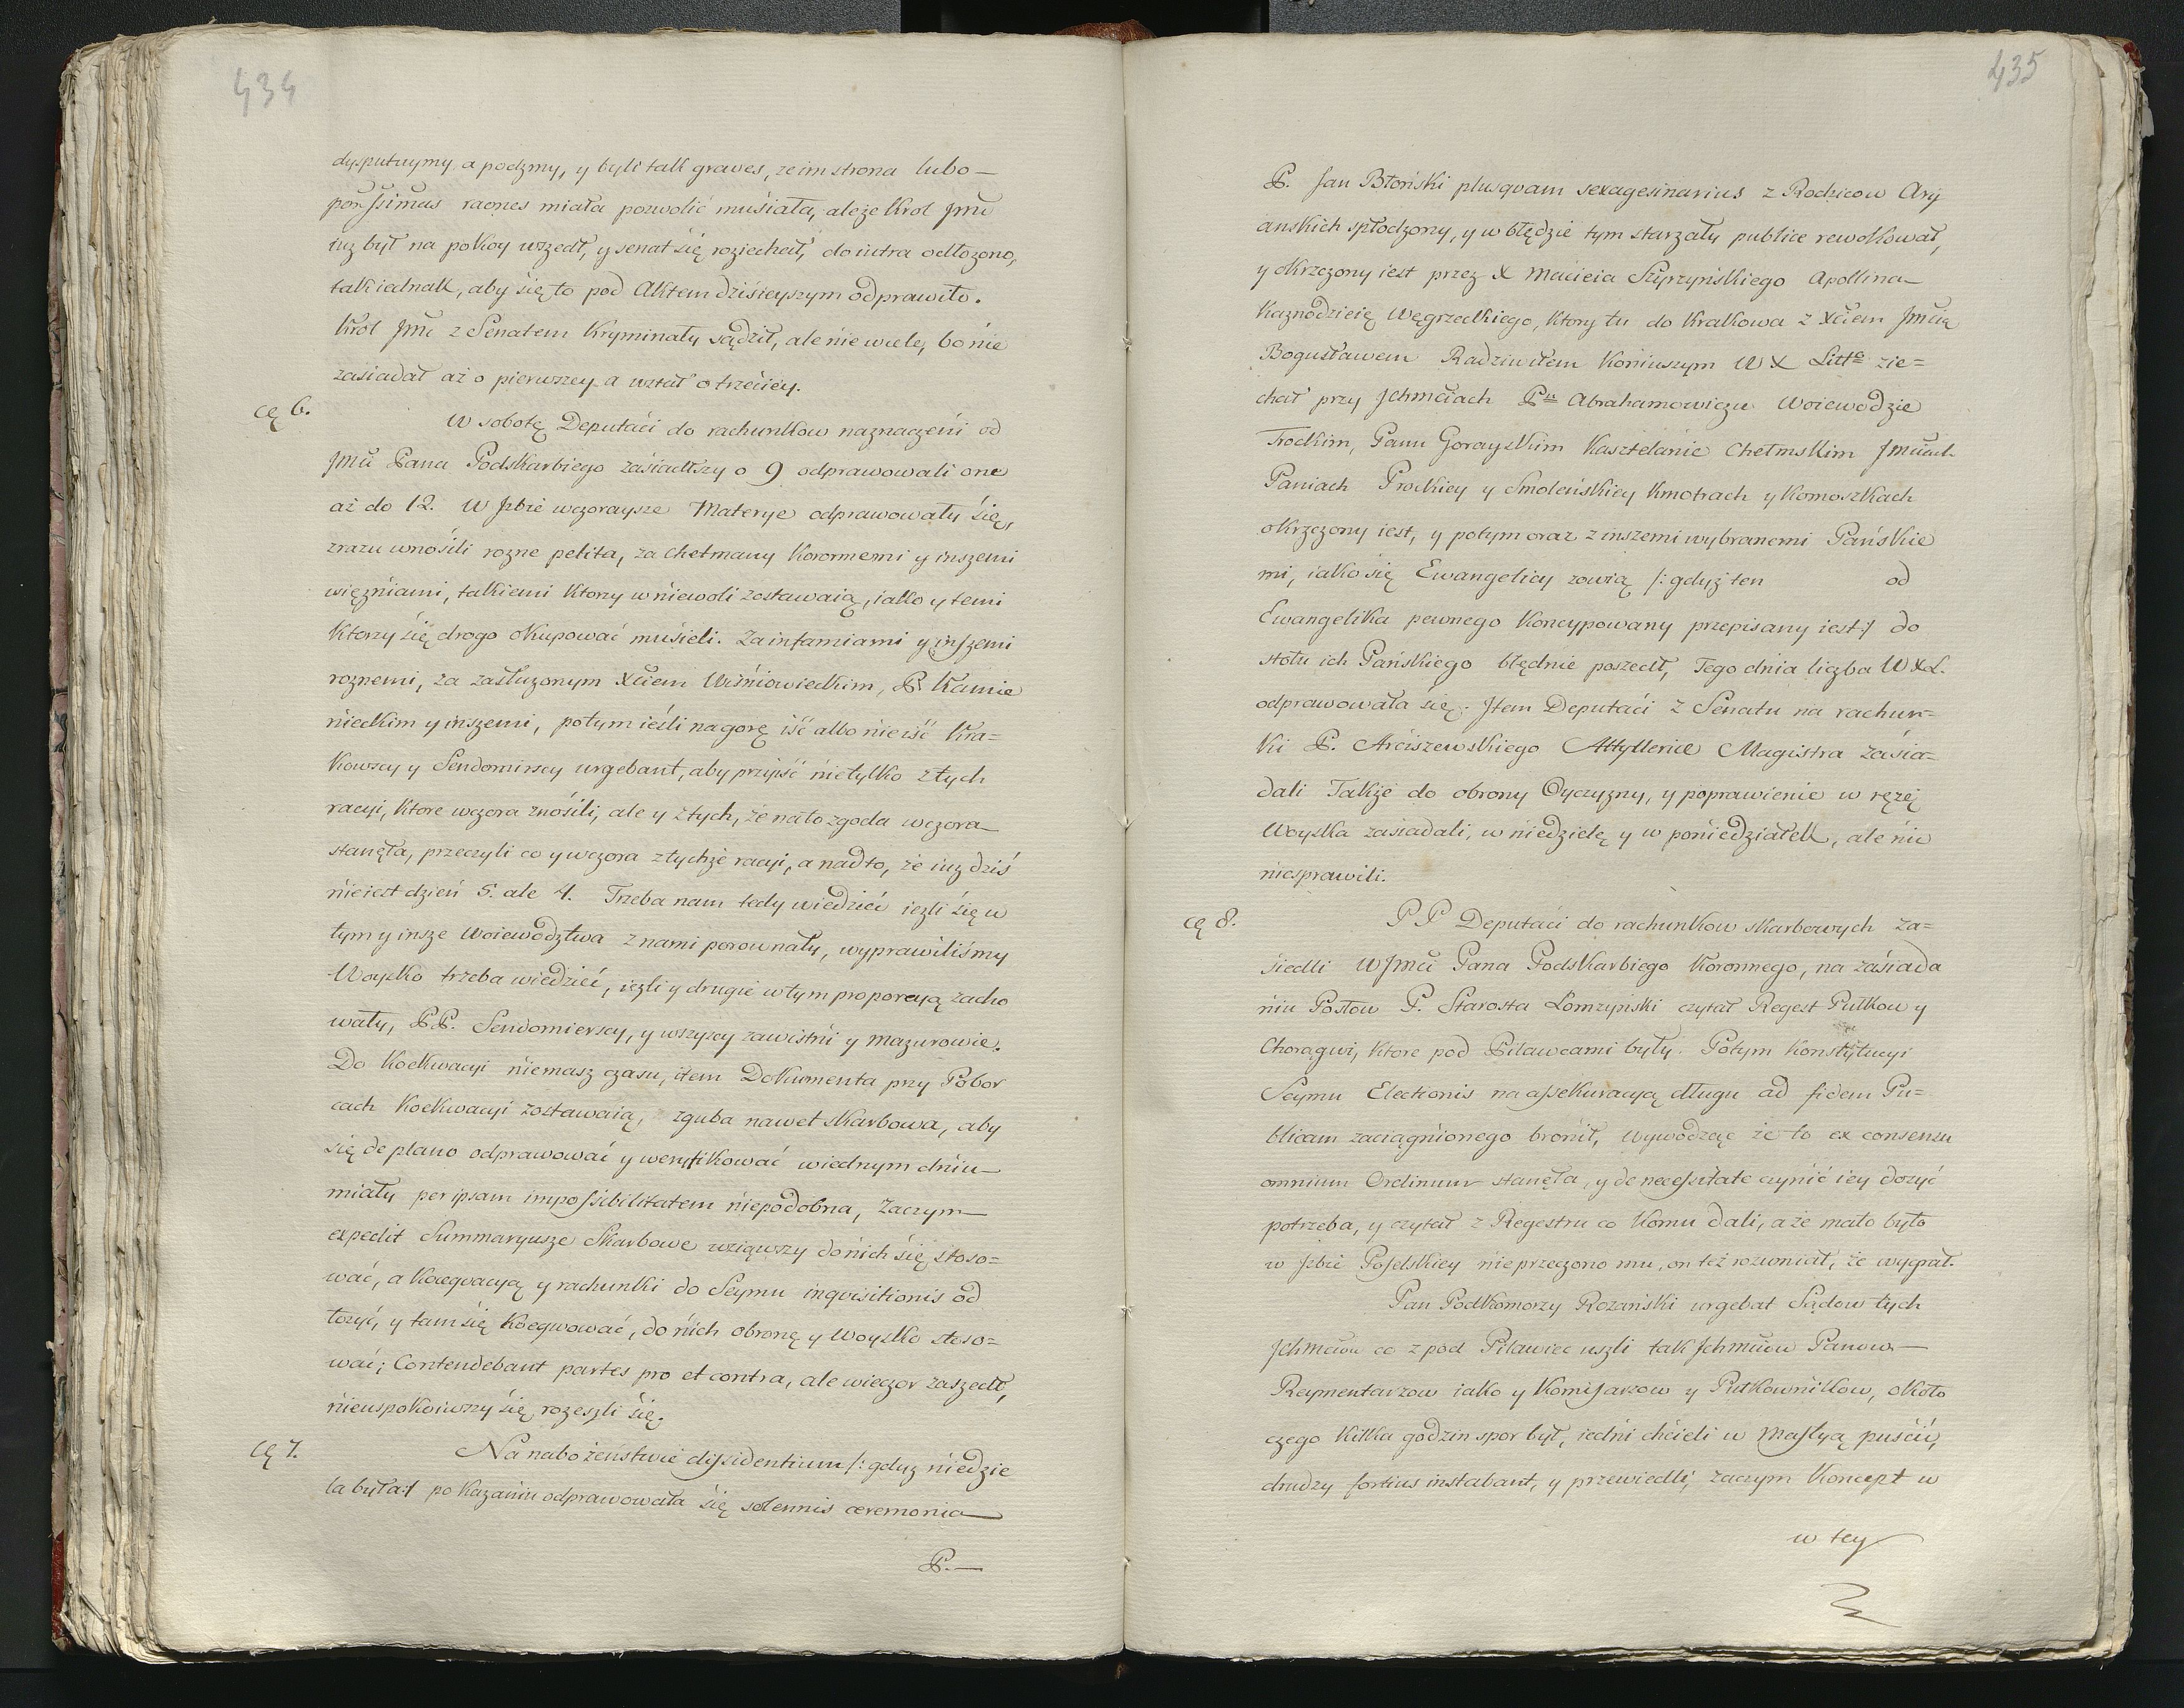 434
dysputuymy, a podzmy, y byli tak graves, ze im strona lubo—
pońssimas raones miała pozwolić muśiała, aleze Krol Jmć
iuz był na pokoy wszedł, y senat się roziechał, do iutra odłozono,
tak iednak, aby się to pod Aktem dziśieyszym odprawiło.
Krol Jmć z Senatem Kryminały sądził, ale nie wiele, bo nie
zasiadał aż o pierwszey a wstał o trzećiey.
cę 6.
W sobotę Deputaći do rachunkow naznaczeni od
Jmći Pana Podskarbiego zaśiadłszy o 9 odprawowali one
aż do 12. W Jzbie wczoraysze Materye odprawowały się,
zrazu wnośili rozne petita, za chetmany Koronnemi y inszemi
więzniami, takiemi Ktorzy w niewoli zostawaią, iako y temi
Ktorzy śię drogo okupować muśieli. Za infamiami y inszemi
roznemi, za zasłuzonym Xćiem Wiśniowieckim, P. Kamie
nieckim y inszemi, potym ieśli na gorę iść albo nie iść Kra=
Kowscy y Sendomirscy urgebant, aby przyść nietylko z tych
racyi, Ktore wczora znośili, ale y z tych, że na to zgoda wczora—
stanęła, przeczyli co y wczora z tychże racyi, a nadto, że iuz dziś
nieiest dzień 5. ale 4. Trzeba nam tedy wiedzieć iezli się w
tym y insze Woiewodztwa z nami porownały, wyprawiliśmy
Woysko trzeba wiedzieć, iezli y drugie w tym proporcyą zacho
wały, PP. Sendomierscy, y wszyscy zawistni y Mazurowie.
Do Koekwacyi niemasz czasu, item Dokumenta przy Pobor
cach Koekwacyi zostawaią, zguba nawet skarbowa, aby
się de plano odprawować y weryfikować wiednym dniu—
miały per ipsam impossibilitatem niepodobna, Zaczym—
expedit Summaryusze Skarbowe wziąwszy do nich się stoso=
wać, a Koeqvacyą y rachunki do Seymu inqvisitionis od
łozyć, y tam się Koeqwować, do nich obronę y Woysko stoso=
wać; Contendebant partes pro et contra, ale wieczor zaszedł,
nieuspokoiwszy się rozeszli się.
cę 7.
Na nabożeństwie dissidentium /: gdyz niedzie
la była :/ po Kazaniu odprawowała się solennis ceremonia
P.—
435
P. Jan Błoński plusqvam sexagesinarius z Rodzicow Ary
anskich spłodzony, y w błędzie tym starzały publice rewokował,
y okrzczony iest przez X Macieia Szyrzyńskiego Apollina—
Kaznodzieię Węgrzeckiego, Ktory tu do Krakowa z Xćiem Jmćią
Bogusławem Radziwiłem Koniuszym W X Litte zie=
chał przy Jchmćiach Pu Abrahamowiczu Woiewodzie
Trockim, Panu Gorayskim Kasztelanie Chełmskim Jmćiach
Paniach Trockiey y Smoleńskiey Kmotrach y Komoszkach
okrzczony iest, y potym oraz z inszemi wybranemi Pańskie
mi, iako się Ewangelicy zowią /: gdyż ten od
Ewangelika pewnego Koncypowany przepisany iest :/ do
stołu ich Pańskiego błędnie poszedł, Tego dnia liczba W X L.
odprawowała się. Jtem Deputaći z Senatu na rachun=
ki P. Arciszewskiego Attylleriae Magistra zaśia=
dali Także do obrony Oyczyzny, y poprawienie w ręzę
Woyska zasiadali, w niedzielę y w poniedziałek, ale nic
niesprawili.
cę 8.
P P Deputaći do rachunkow skarbowych za=
śiedli W Jmći Pana Podskarbiego Koronnego, na zaśiada
niu Posłow P. Starosta Łomzyński czytał Regest Pułkow y
Chorągwi, Ktore pod Pilawcami były. Potym Konstytucyi
Seymu Electionis na assekuracyą długu ad fidem Pu=
blicam zaciągnionego bronił, wywodząc że to ex consensu
omnium Ordinum stanęła, y de necessitate czynić iey dosyć
potrzeba, y czytał z Regestru co Komu dali, a że mało było
w Jzbie Poselskiey nie przeczono mu, on też rozumiał, że wygrał.
Pan Podkomorzy Rozański urgebat Sądow tych
Jchmćiow co z pod Pilawiec uszli tak Jchmćiow Panow—
Reymentarzow iako y Komissarzow y Pułkownikow, około
czego Kilka godzin spor był, iedni chcieli w Massyą puścić,
drudzy fortius instabant, y przewiedli, zaczym Koncept w
w tey